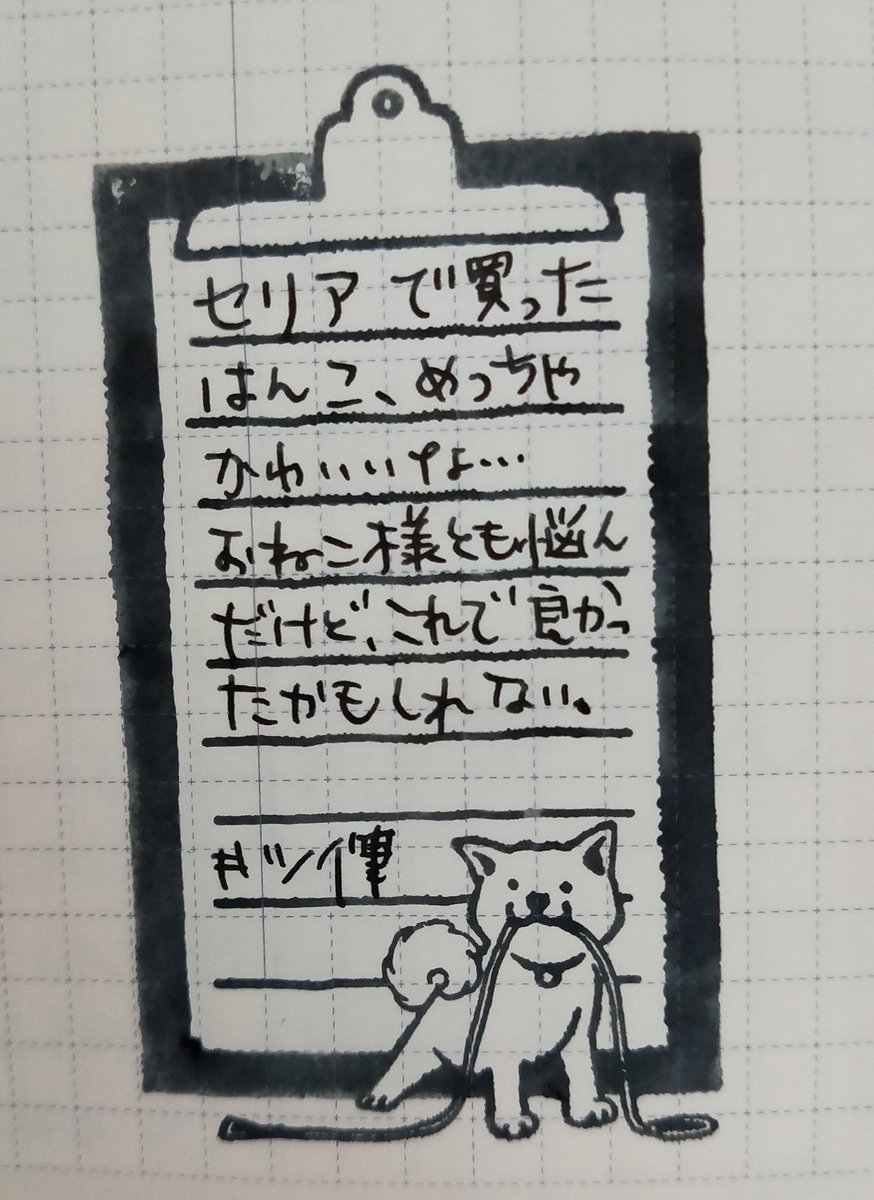 セリアで買った
はんこ、めっちゃ
かわいいすよ…
おねこ様とも悩ん
だけど、これで良かっ
たかもしれない。
#ツイ筆